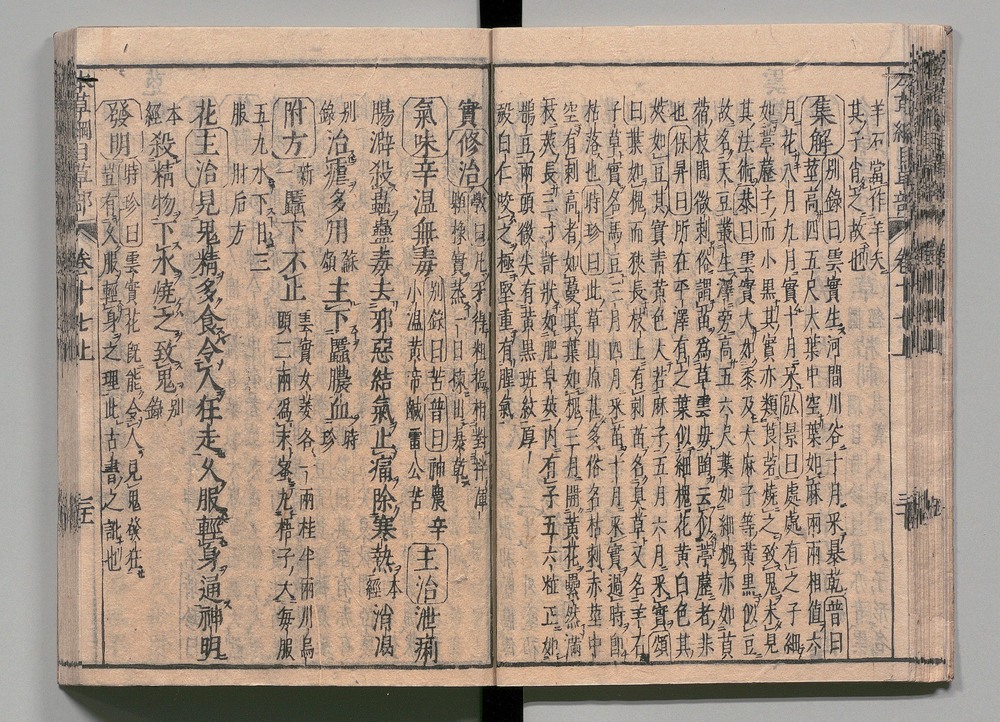 羊不當作羊矣
其子肖之故也
集解別錄曰雲實生河間川谷十月采暴乾普曰
莖高四五尺大葉中空葉如麻兩兩相值六
月花八月九月實十月采弘景曰處處有之子細
如葶藶子而小黑其實亦類莨菪燒之致鬼未見
其法術恭曰雲實大如黍及大麻子等黃黑似豆
故名天豆叢生澤旁高五六尺葉如細槐亦如苜
蓿枝間微刺俗謂苗為草雲母陶云似葶藶者非
也保昇曰所在平澤有之葉似細槐花黃白色其
莢如豆其實青黃色大若麻子五月六月采實頌
曰葉如槐而狹長枝上有刺苗名臭草又名羊石
子草實名馬豆三月四月采苗十月采實過時即
枯落也時珍曰此草山原甚多俗名粘刺赤莖中
空有刺高者如蔓其葉如槐三月開黃花纍然滿
枝莢長三寸許狀如肥皂莢內有子五六粒正如
鵲豆兩頭微尖有黃黑班紋厚
殼白仁咬之極堅重有腥氣
實修治斅曰凡采得粗擣相對拌渾
顆橡實蒸一日揀出暴乾
氣味辛溫無毒別錄曰苦普曰神農辛
小溫黃帝鹹雷公苦主治泄痢
腸澼殺蟲蠱毒去邪惡結氣止痛除寒熱本經消渴
別錄治瘧多用蘇頌主下䘌膿血時珍
附方新一䘌下不止雲實女萎各一兩桂半兩川烏
頭二兩為末蜜丸梧子大每服
五九水下日三
服肘后方
花主治見鬼精多食令人狂走久服輕身通神明
本經殺精物下水燒之致鬼別錄
發明時珍曰雲實花既能令人見鬼發狂
豈有久服輕身之理此古書之訛也
本草綱目草部
卷十七上